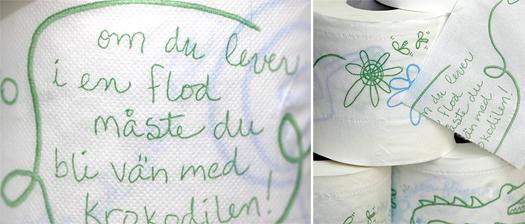 om du lever
i en flod
måste du
bli vän med
krokodilen!
om du lever
flod
måste du
vän med
krokodilen!